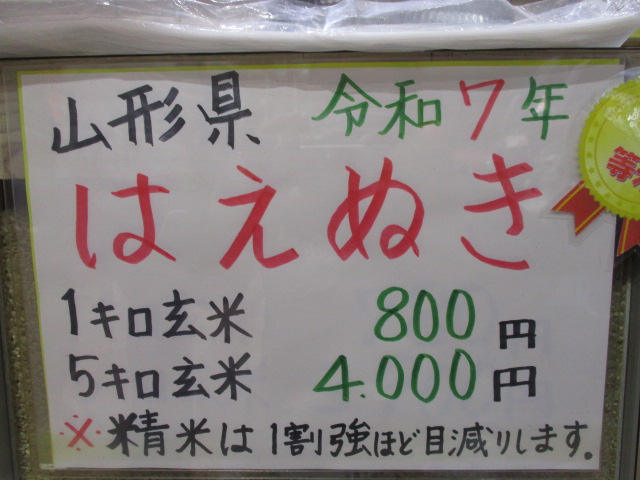 山形県 令和7年
はえぬき
1キロ玄米 800円
5キロ玄米 4.000円
※精米は1割強ほど目減りします。